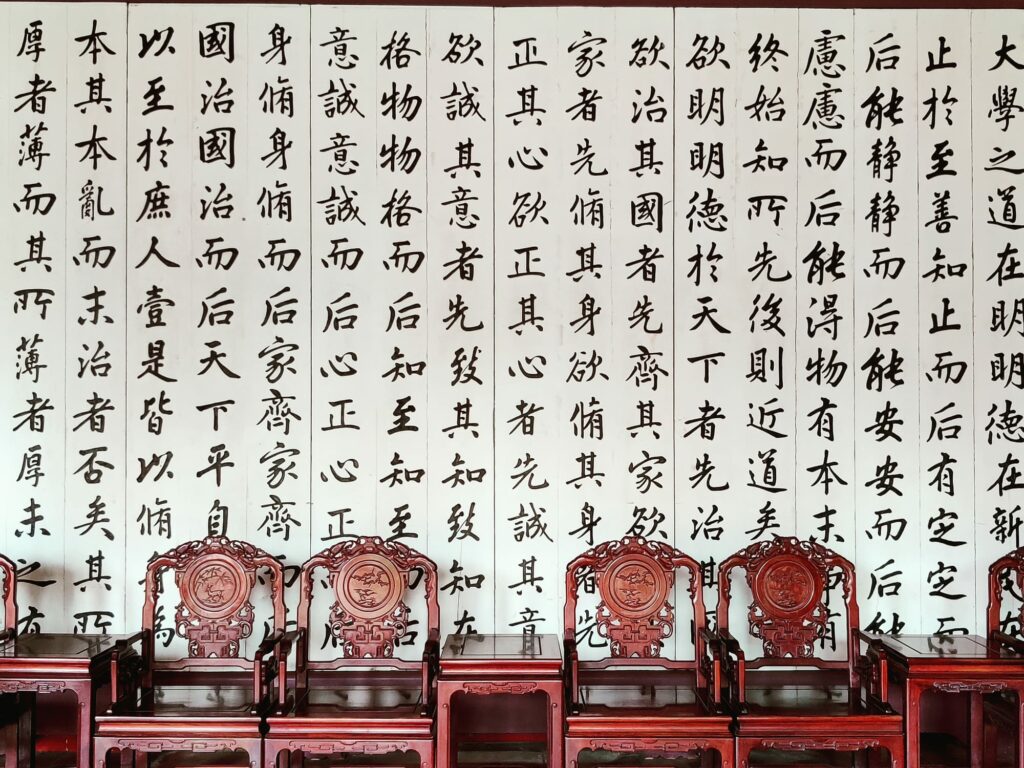 大學之道在明明德在新
止於至善知止而后有定定而
后能静静而后能安安而后能
慮慮而后能得物有本末事有
終始知所先後則近道矣
欲明明德於天下者先治其國
欲治其國者先齊其家欲
家者先脩其身欲脩其身者先
正其心欲正其心者先誠其意
欲誠其意者先致其知致知在
格物物格而后知至知至而后
意誠意誠而后心正心正而后
身脩身脩而后家齊家齊而后
國治國治而后天下平自
以至於庶人壹是皆以脩身為
本其本亂而末治者否矣其所
厚者薄而其所薄者厚未之有